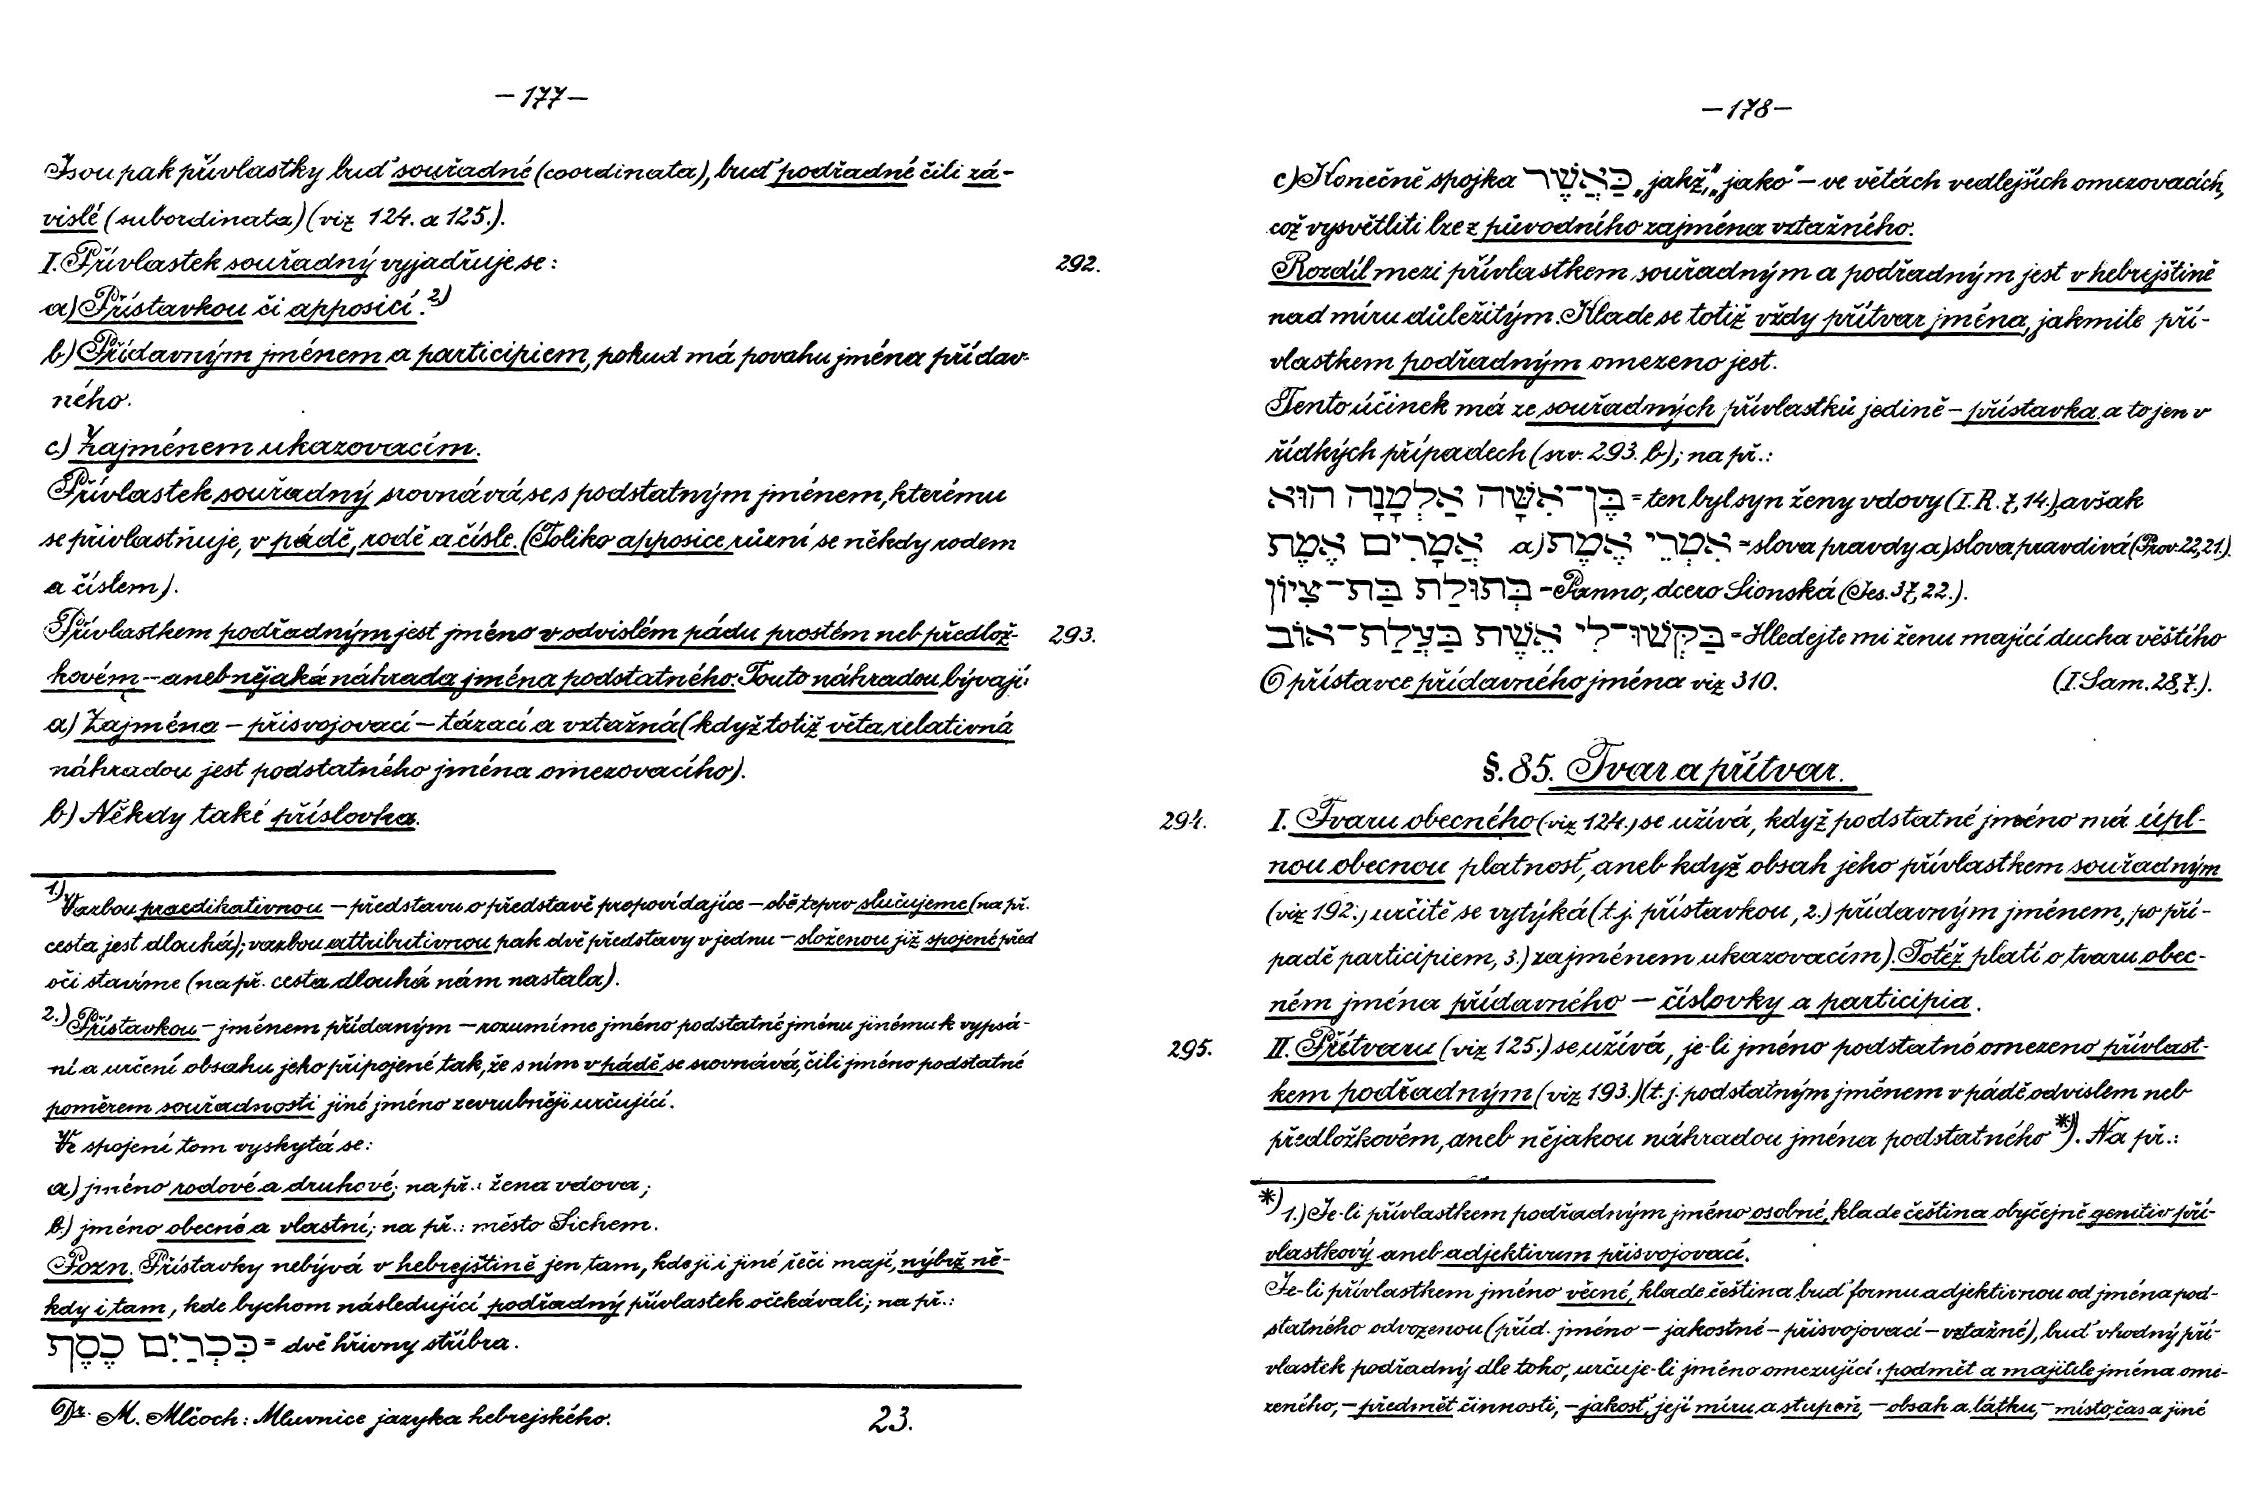 — 177 —
Jsou pak přívlastky buď souřadné (coordinata), buď podřadné čili zá-
vislé (subordinata) (viz 124. a 125.).
I. Přívlastek souřadný vyjadřuje se:
292.
a) Přístavkou či apposicí.²)
b) Přídavným jménem a participiem, pokud má povahu jména přídav-
ného.
c) Zajménem ukazovacím.
Přívlastek souřadný srovnává se s podstatným jménem, kterému
se přivlastňuje, v pádě, rodě a čísle. (Toliko apposice různí se někdy rodem
a číslem).
Přívlastkem podřadným jest jméno v odvislém pádu prostém neb předlož-
293.
kovém — aneb nějaká náhrada jména podstatného. Touto náhradou bývají:
a) Zajména — přisvojovací — tázací a vztažná (když totiž věta relativná
náhradou jest podstatného jména omezovacího).
b) Někdy také příslovka.
1.) Vazbou praedikativnou — představu o představě propovídajíce — obě teprv slučujeme (na př.
cesta jest dlouhá); vazbou attributivnou pak dvě představy v jednu — složenou již spojené před
oči stavíme (na př. cesta dlouhá nám nastala).
2.) Přístavkou — jménem přídavným — rozumíme jméno podstatné jménu jinému k vypsá-
ní a určení obsahu jeho připojené tak, že s ním v pádě se srovnává, čili jméno podstatné
poměrem souřadnosti jiné jméno zevrubněji určující.
Ve spojení tom vyskytá se:
a) jméno rodové a druhové; na př.: žena vdova;
b) jméno obecné a vlastní; na př.: město Sichem.
Pozn. Přístavky nebývá v hebrejštině jen tam, kde ji i jiné řeči mají, nýbrž ně-
kdy i tam, kde bychom následující podřadný přívlastek očekávali; na př.:
כִּכְּרַיִם כֶּסֶף = dvě hřivny stříbra.
Dr. M. Mlčoch: Mluvnice jazyka hebrejského. 23.
— 178 —
c) Konečně spojka כַּאֲשֶׁר „jakž", „jako" — ve větách vedlejších omezovacích,
což vysvětliti lze z původního zajména vztažného.
Rozdíl mezi přívlastkem souřadným a podřadným jest v hebrejštině
nad míru důležitým. Klade se totiž vždy přítvar jména, jakmile pří-
vlastkem podřadným omezeno jest.
Tento účinek má ze souřadných přívlastků jedině — přístavka a to jen v
řídkých případech (srv. 293. b); na př.:
בֶּן־אִשָּׁה אַלְמָנָה הוּא = ten byl syn ženy vdovy (I. R. 7, 14.), avšak
אִמְרֵי אֱמֶת a) אֲמָרִים אֱמֶת = slova pravdy a) slova pravdivá (Prov. 22, 21.).
בְּתוּלַת בַּת־צִיּוֹן = Panno, dcero Sionská (Jes. 37, 22.).
בַּקְּשׁוּ־לִי אֵשֶׁת בַּעֲלַת־אוֹב = Hledejte mi ženu mající ducha věštího
O přístavce přídavného jména viz 310. (I. Sam. 28, 7.).
§. 85. Tvar a přítvar.
294.
I. Tvaru obecného (viz 124.) se užívá, když podstatné jméno má úpl-
nou obecnou platnost, aneb když obsah jeho přívlastkem souřadným
(viz 192.) určitě se vytýká (t. j. přístavkou, 2.) přídavným jménem, po pří-
padě participiem, 3.) zajménem ukazovacím). Totéž platí o tvaru obec-
ném jména přídavného — číslovky a participia.
295.
II. Přítvaru (viz 125.) se užívá, je-li jméno podstatné omezeno přívlast-
kem podřadným (viz 193.) (t. j. podstatným jménem v pádě odvislem neb
předložkovém, aneb nějakou náhradou jména podstatného *). Na př.:
*) 1.) Je-li přívlastkem podřadným jméno osobné, klade čeština obyčejně genitiv pří-
vlastkový aneb adjektivum přisvojovací.
Je-li přívlastkem jméno věcné, klade čeština buď formu adjektivnou od jména pod-
statného odvozenou (příd. jméno — jakostné — přisvojovací — vztažné), buď vhodný pří-
vlastek podřadný dle toho, určuje-li jméno omezující: podmět a majitele jména ome-
zeného, — předmět činnosti, — jakost, její míru a stupeň, — obsah a látku, — místo, čas a jiné